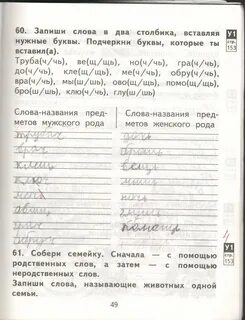 60. Запиши слова в два столбика, вставляя
нужные буквы. Подчеркни буквы, которые ты
вставил(а).
У1
стр.
153
Труба(ч/чь), ве(щ/щь), но(ч/чь), гра(ч/чь),
до(ч/чь), кле(щ/щь), ме(ч/чь), обру(ч/чь),
вра(ч/чь), мы(ш/шь), ово(щ/щь), помо(щ/щь),
бро(ш/шь), клю(ч/чь), глу(ш/шь)
Слова-названия пред-
метов мужского рода
Слова-названия пред-
метов женского рода
трубач
дочь
врач
брошь
клещ
вещь
ключ
мышь
ночь
овощ
глушь
помощь
4
61. Собери семейку. Сначала — с помощью
родственных слов, а затем — с помощью
неродственных слов.
У1
стр.
153
Запиши слова, называющие животных одной
семьи.
49